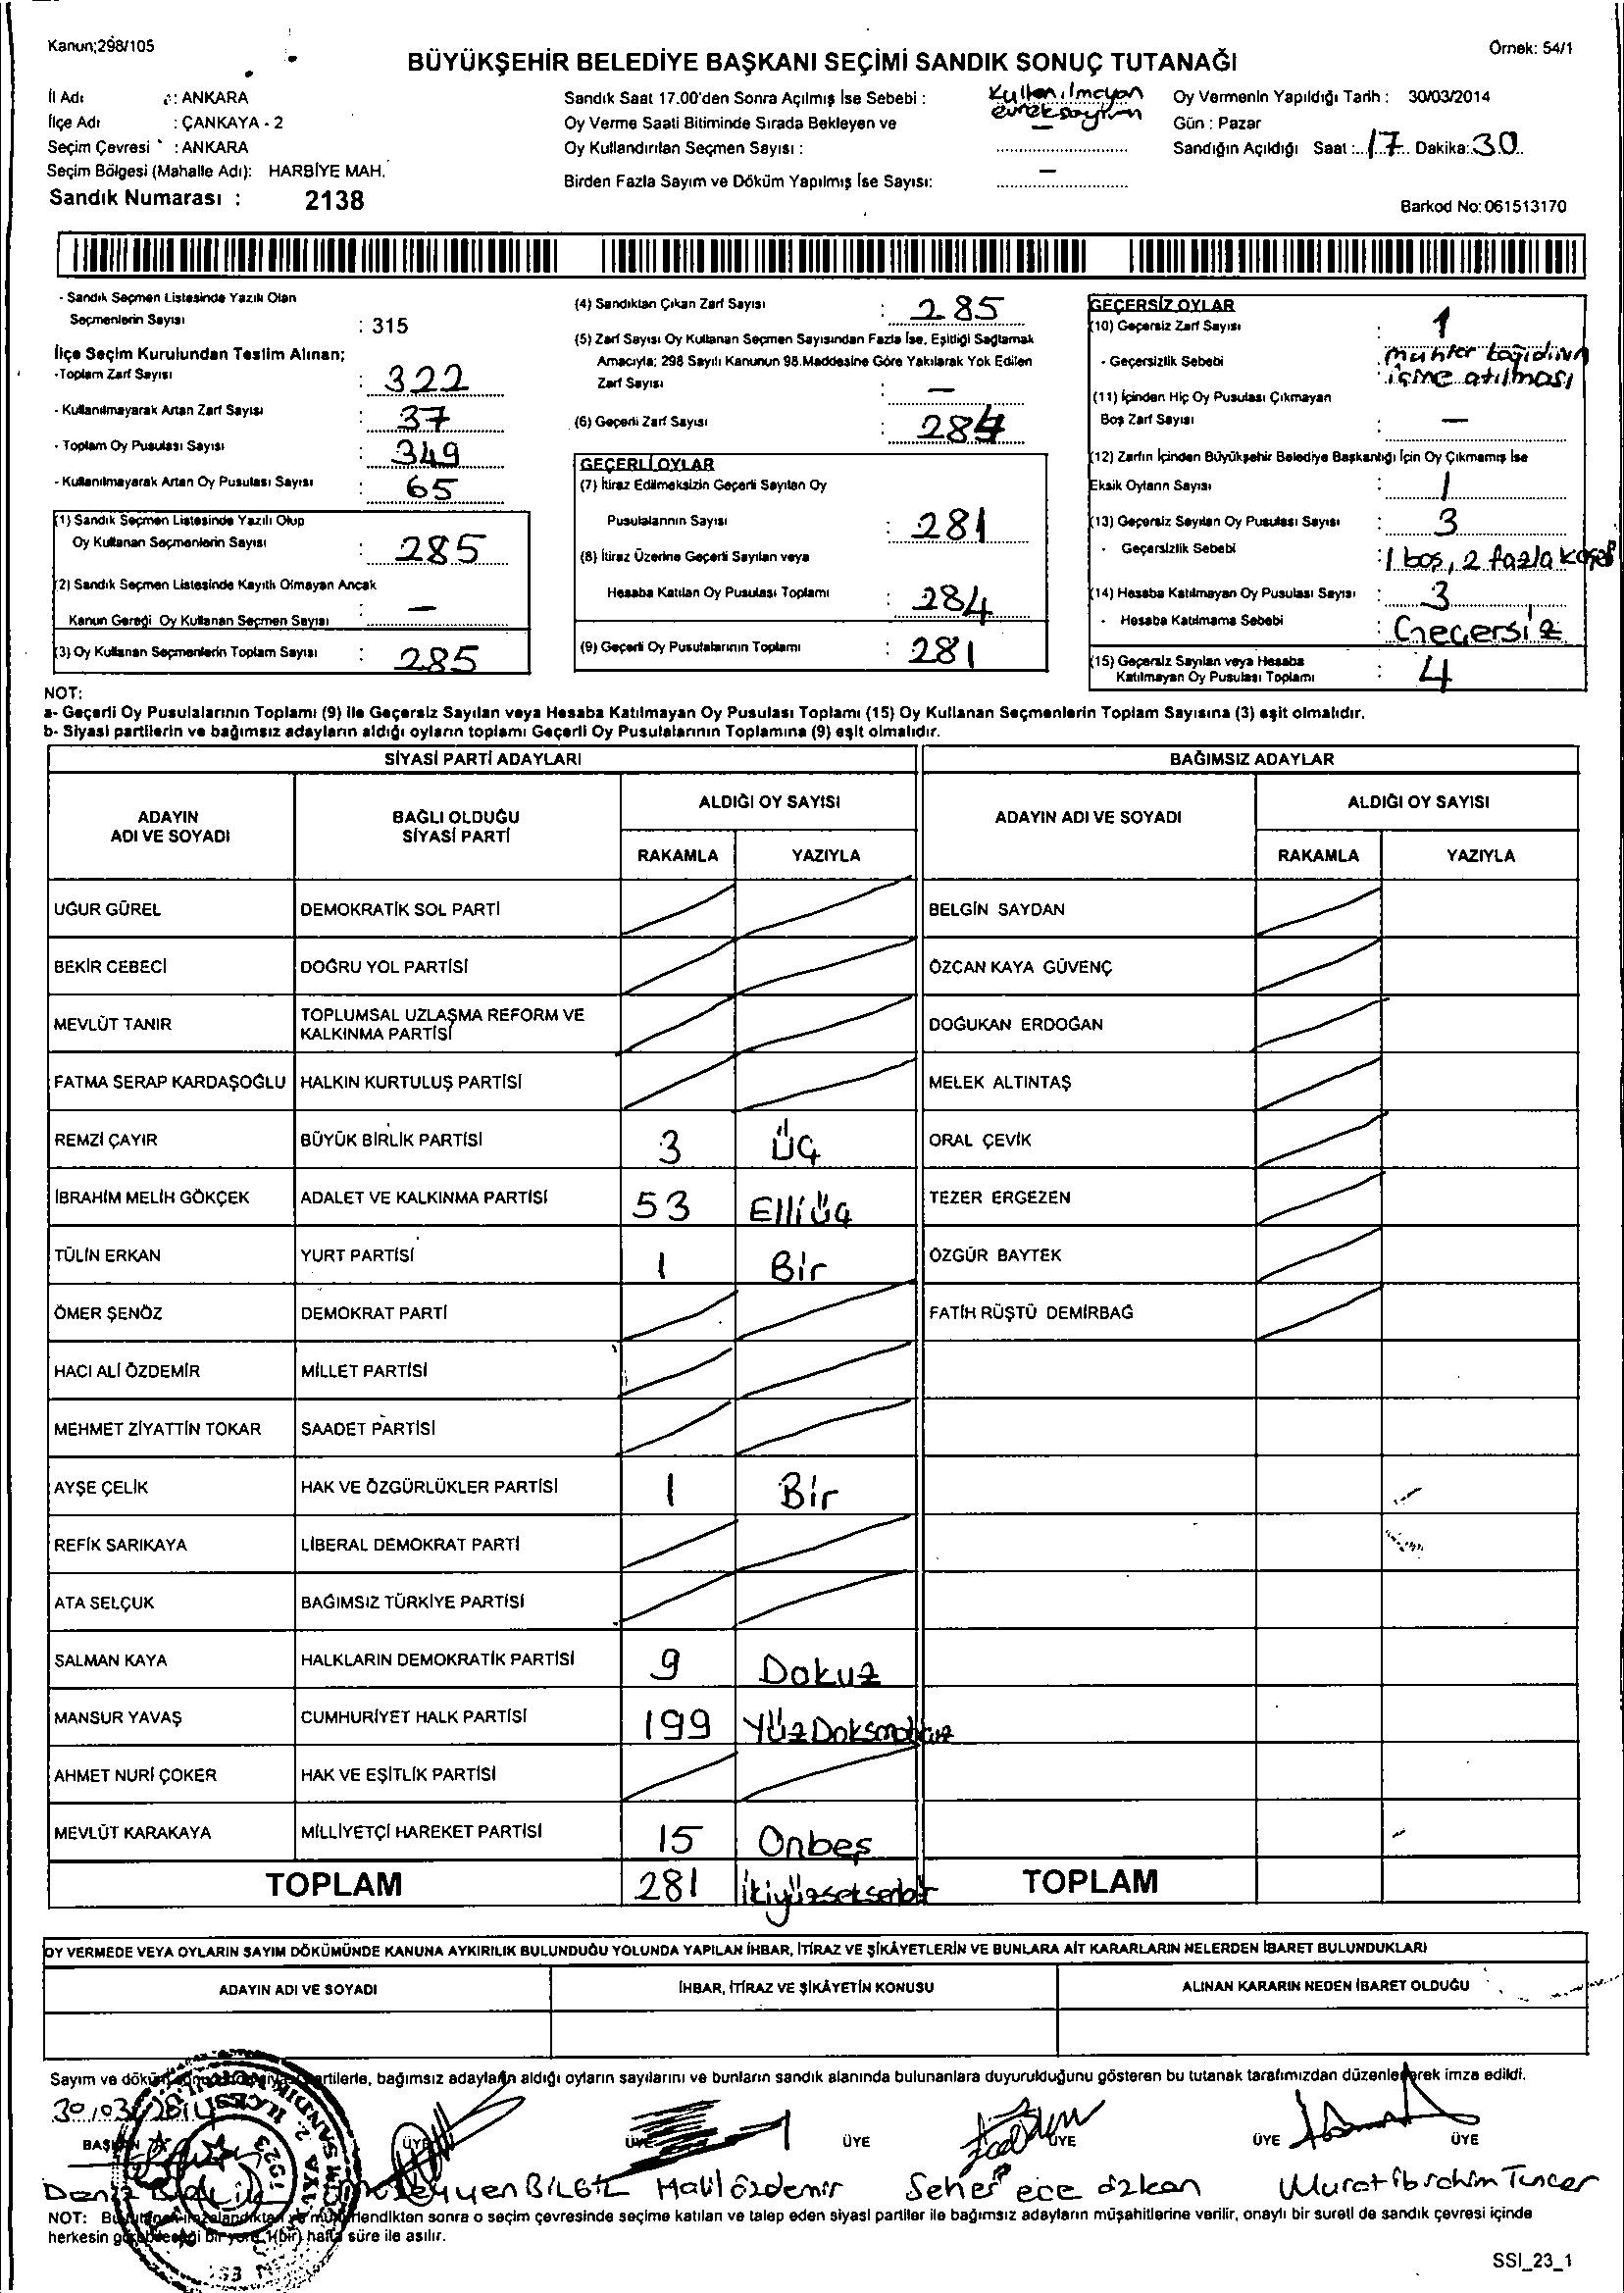 Kanun;298/105
Örnek: 54/1
BÜYÜKŞEHİR BELEDİYE BAŞKANI SEÇİMİ SANDIK SONUÇ TUTANAĞI
İl Adı : ANKARA
İlçe Adı : ÇANKAYA - 2
Seçim Çevresi : ANKARA
Seçim Bölgesi (Mahalle Adı): HARBİYE MAH.
Sandık Numarası : 2138
Sandık Saat 17.00'den Sonra Açılmış İse Sebebi : Kullanılmayan evrak sayımı
Oy Verme Saati Bitiminde Sırada Bekleyen ve
Oy Kullandırılan Seçmen Sayısı : —
Birden Fazla Sayım ve Döküm Yapılmış İse Sayısı: —
Oy Vermenin Yapıldığı Tarih : 30/03/2014
Gün : Pazar
Sandığın Açıldığı Saat : 17 Dakika: 30
Barkod No: 061513170
- Sandık Seçmen Listesinde Yazılı Olan
Seçmenlerin Sayısı : 315
İlçe Seçim Kurulundan Teslim Alınan;
-Toplam Zarf Sayısı : 322
- Kullanılmayarak Artan Zarf Sayısı : 37
- Toplam Oy Pusulası Sayısı : 349
- Kullanılmayarak Artan Oy Pusulası Sayısı : 65
(1) Sandık Seçmen Listesinde Yazılı Olup
Oy Kullanan Seçmenlerin Sayısı : 285
(2) Sandık Seçmen Listesinde Kayıtlı Olmayan Ancak
Kanun Gereği Oy Kullanan Seçmen Sayısı : —
(3) Oy Kullanan Seçmenlerin Toplam Sayısı : 285
(4) Sandıktan Çıkan Zarf Sayısı : 285
(5) Zarf Sayısı Oy Kullanan Seçmen Sayısından Fazla İse, Eşitliği Sağlamak
Amacıyla; 298 Sayılı Kanunun 98.Maddesine Göre Yakılarak Yok Edilen
Zarf Sayısı : —
(6) Geçerli Zarf Sayısı : 284
GEÇERLİ OYLAR
(7) İtiraz Edilmeksizin Geçerli Sayılan Oy
Pusulalarının Sayısı : 281
(8) İtiraz Üzerine Geçerli Sayılan veya
Hesaba Katılan Oy Pusulası Toplamı : 284
(9) Geçerli Oy Pusulalarının Toplamı : 281
GEÇERSİZ OYLAR
(10) Geçersiz Zarf Sayısı : 1
- Geçersizlik Sebebi : muhtar kağıdının içine atılması
(11) İçinden Hiç Oy Pusulası Çıkmayan
Boş Zarf Sayısı : —
(12) Zarfın İçinden Büyükşehir Belediye Başkanlığı İçin Oy Çıkmamış İse
Eksik Oyların Sayısı : 1
(13) Geçersiz Sayılan Oy Pusulası Sayısı : 3
- Geçersizlik Sebebi : 1 boş, 2 fazla kaşe
(14) Hesaba Katılmayan Oy Pusulası Sayısı : 3
- Hesaba Katılmama Sebebi : Geçersiz
(15) Geçersiz Sayılan veya Hesaba
Katılmayan Oy Pusulası Toplamı : 4
NOT:
a- Geçerli Oy Pusulalarının Toplamı (9) ile Geçersiz Sayılan veya Hesaba Katılmayan Oy Pusulası Toplamı (15) Oy Kullanan Seçmenlerin Toplam Sayısına (3) eşit olmalıdır.
b- Siyasi partilerin ve bağımsız adayların aldığı oyların toplamı Geçerli Oy Pusulalarının Toplamına (9) eşit olmalıdır.
SİYASİ PARTİ ADAYLARI
BAĞIMSIZ ADAYLAR
ADAYIN ADI VE SOYADI
BAĞLI OLDUĞU SİYASİ PARTİ
ALDIĞI OY SAYISI
ADAYIN ADI VE SOYADI
ALDIĞI OY SAYISI
RAKAMLA YAZIYLA
RAKAMLA YAZIYLA
UĞUR GÜREL DEMOKRATİK SOL PARTİ BELGİN SAYDAN
BEKİR CEBECİ DOĞRU YOL PARTİSİ ÖZCAN KAYA GÜVENÇ
MEVLÜT TANIR TOPLUMSAL UZLAŞMA REFORM VE KALKINMA PARTİSİ DOĞUKAN ERDOĞAN
FATMA SERAP KARDAŞOĞLU HALKIN KURTULUŞ PARTİSİ MELEK ALTINTAŞ
REMZİ ÇAYIR BÜYÜK BİRLİK PARTİSİ 3 Üç ORAL ÇEVİK
İBRAHİM MELİH GÖKÇEK ADALET VE KALKINMA PARTİSİ 53 Elliüç TEZER ERGEZEN
TÜLİN ERKAN YURT PARTİSİ 1 Bir ÖZGÜR BAYTEK
ÖMER ŞENÖZ DEMOKRAT PARTİ FATİH RÜŞTÜ DEMİRBAĞ
HACI ALİ ÖZDEMİR MİLLET PARTİSİ
MEHMET ZİYATTİN TOKAR SAADET PARTİSİ
AYŞE ÇELİK HAK VE ÖZGÜRLÜKLER PARTİSİ 1 Bir
REFİK SARIKAYA LİBERAL DEMOKRAT PARTİ
ATA SELÇUK BAĞIMSIZ TÜRKİYE PARTİSİ
SALMAN KAYA HALKLARIN DEMOKRATİK PARTİSİ 9 Dokuz
MANSUR YAVAŞ CUMHURİYET HALK PARTİSİ 199 YüzDoksandokuz
AHMET NURİ ÇOKER HAK VE EŞİTLİK PARTİSİ
MEVLÜT KARAKAYA MİLLİYETÇİ HAREKET PARTİSİ 15 Onbeş
TOPLAM 281 İkiyüzseksenbir TOPLAM
OY VERMEDE VEYA OYLARIN SAYIM DÖKÜMÜNDE KANUNA AYKIRILIK BULUNDUĞU YOLUNDA YAPILAN İHBAR, İTİRAZ VE ŞİKÂYETLERİN VE BUNLARA AİT KARARLARIN NELERDEN İBARET BULUNDUKLARI
ADAYIN ADI VE SOYADI İHBAR, İTİRAZ VE ŞİKÂYETİN KONUSU ALINAN KARARIN NEDEN İBARET OLDUĞU
Sayım ve döküm partilerle, bağımsız adayların aldığı oyların sayılarını ve bunların sandık alanında bulunanlara duyurulduğunu gösteren bu tutanak tarafımızdan düzenlenerek imza edildi.
30/03/2014
BAŞKAN ÜYE ÜYE ÜYE ÜYE ÜYE ÜYE
Deniz BİLGİL Halil özdemir Seher ece özkan Murat ibrahim Tuncer
NOT: Bu tutanak imzalandıktan ve mühürlendikten sonra o seçim çevresinde seçime katılan ve talep eden siyasi partiler ile bağımsız adayların müşahitlerine verilir, onaylı bir sureti de sandık çevresi içinde
herkesin görebileceği bir yere 1(bir) hafta süre ile asılır.
SSI_23_1